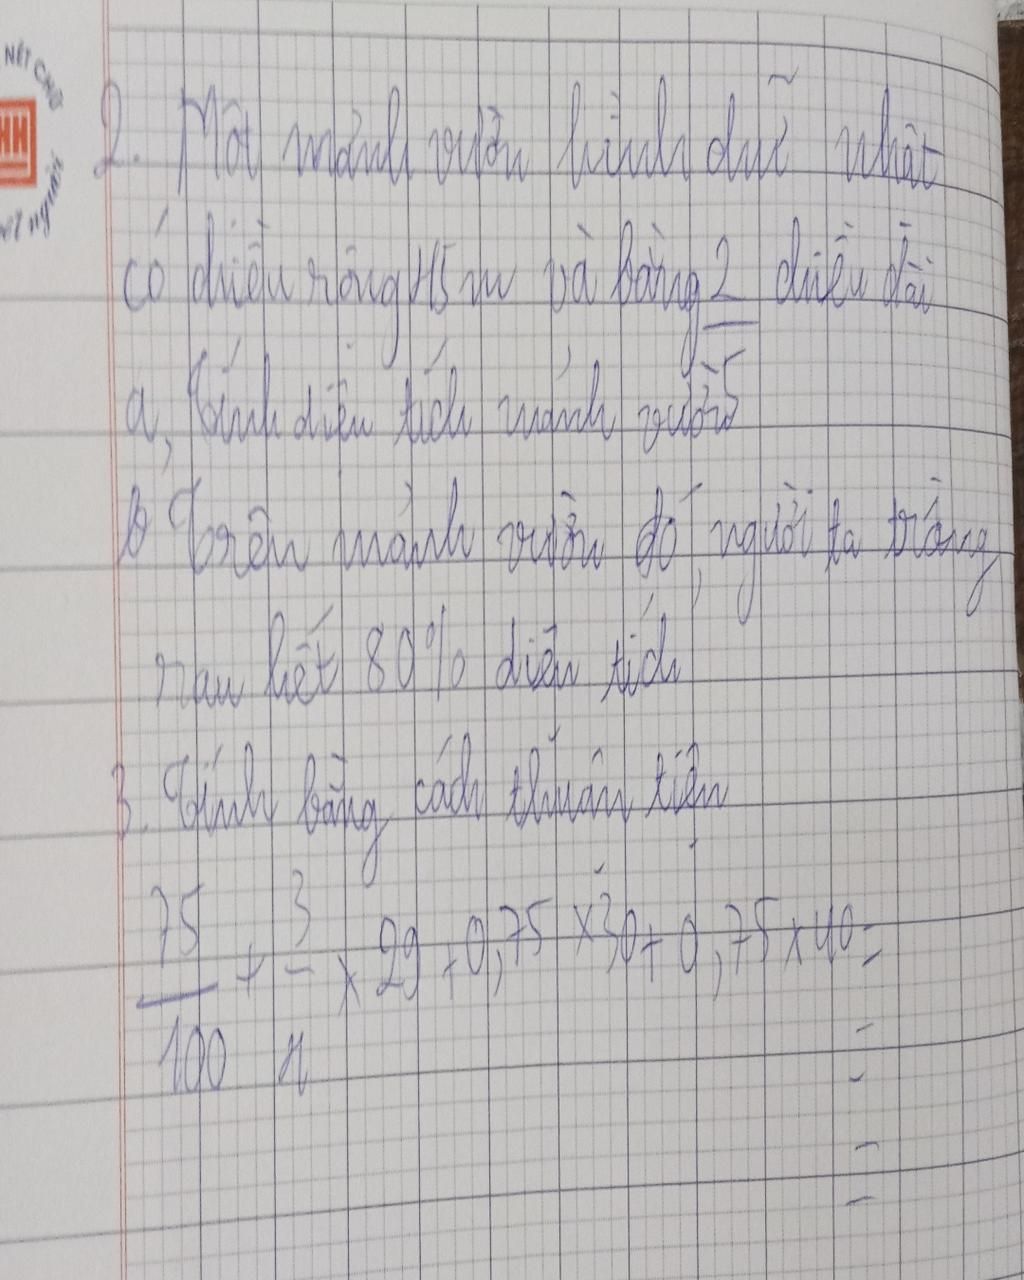 NÉT CHỮ
HH
nết người
2. Một mảnh vườn hình chữ nhật
có chiều rộng 45 m và bằng 2/5 chiều dài
a, Tính diện tích mảnh vườn
b Trên mảnh vườn đó, người ta trồng
rau hết 80% diện tích
3. Tính bằng cách thuận tiện
75/100 + 3/4 x 29 + 0,75 x 30 + 0,75 x 40 =
=
=